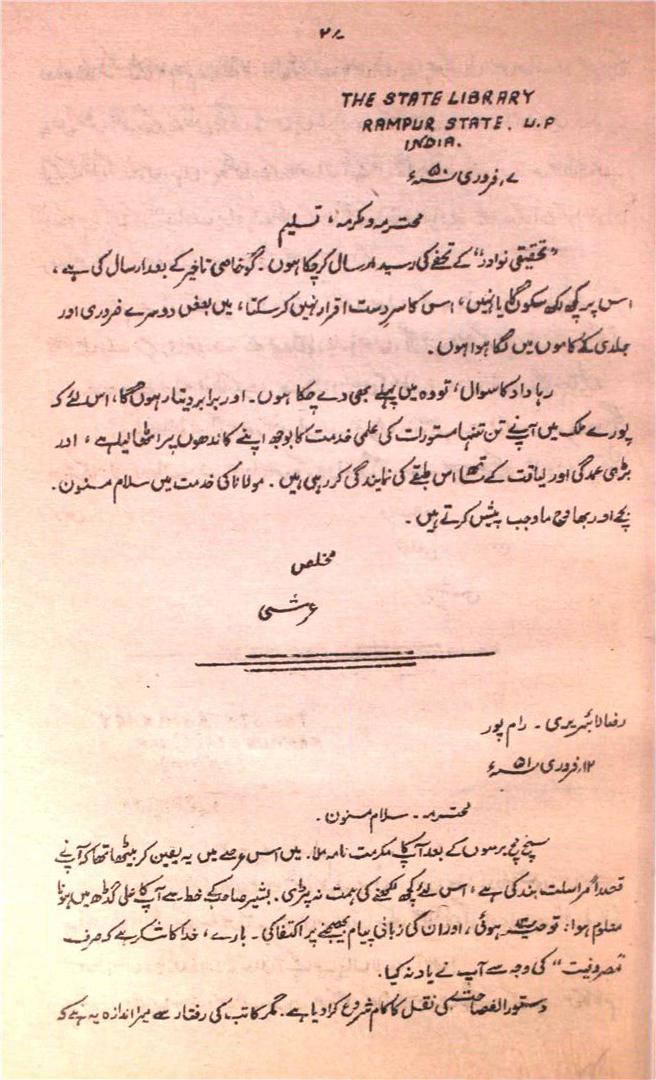 ۲۷
THE STATE LIBRARY
RAMPUR STATE. U.P
INDIA.
۷؍ فروری ۵۰ء
محترمہ و مکرمہ، تسلیم
"تحقیقی نوادر" کے تحفے کی رسید ارسال کر چکا ہوں۔ گو خاصی تاخیر کے بعد ارسال کی ہے،
اس پر کچھ لکھ سکوں گا یا نہیں، اس کا سرِدست اقرار نہیں کر سکتا، میں بعض دوسرے ضروری اور
جلدی کے کاموں میں لگا ہوا ہوں۔
رہا داد کا سوال، تو وہ میں پہلے بھی دے چکا ہوں۔ اور برابر دیتا رہوں گا، اس لئے کہ
پورے ملک میں آپنے تن تنہا مستورات کی علمی خدمت کا بوجھ اپنے کاندھوں پر اٹھا لیا ہے، اور
بڑی عمدگی اور لیاقت کے ساتھ اس طبقے کی نمایندگی کر رہی ہیں۔ مولانا کی خدمت میں سلام مسنون۔
بچے اور بھاوج ماوجب پیش کرتے ہیں۔
مخلص
عرشی
رضا لائبریری۔ رام پور
۱۲؍ فروری ۵۱ء
محترمہ۔ سلام مسنون۔
سچ مچ برسوں کے بعد آپکا مکرمت نامہ ملا۔ میں اس عرصے میں یہ یقین کر بیٹھا تھا کہ آپنے
قصداً مراسلت بند کی ہے، اس لئے کچھ لکھنے کی ہمت نہ پڑی۔ بشیر صاحب کے خط سے آپکا علی گڈھ میں ہونا
معلوم ہوا، تو حیرت ہوئی، اور ان کی زبانی پیام بھیجنے پر اکتفا کی۔ بارے، خدا کا شکر ہے کہ صرف
"مصروفیت" کی وجہ سے آپ نے یاد نہ کیا۔
دستور الفصاحت کی نقل کا کام شروع کرا دیا ہے۔ مگر کاتب کی رفتار سے میرا اندازہ یہ ہے کہ